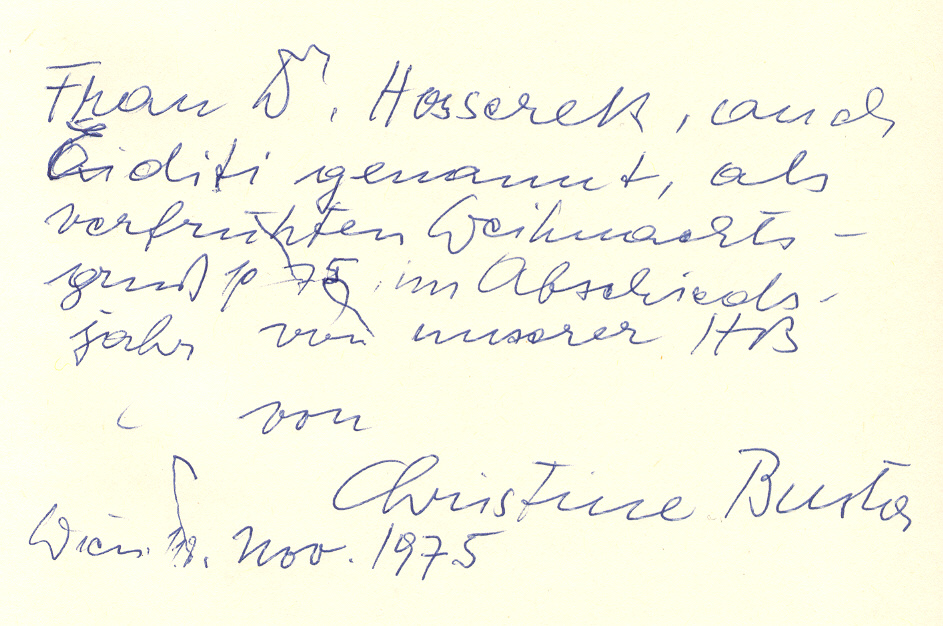 Frau Dr. Hosserek, auch
Giditi genannt, als
verfrühten Weihnachts-
gruß p 75 im Abschieds-
jahr von unserer HB
von
Christine Busta
Wien. Nov. 1975